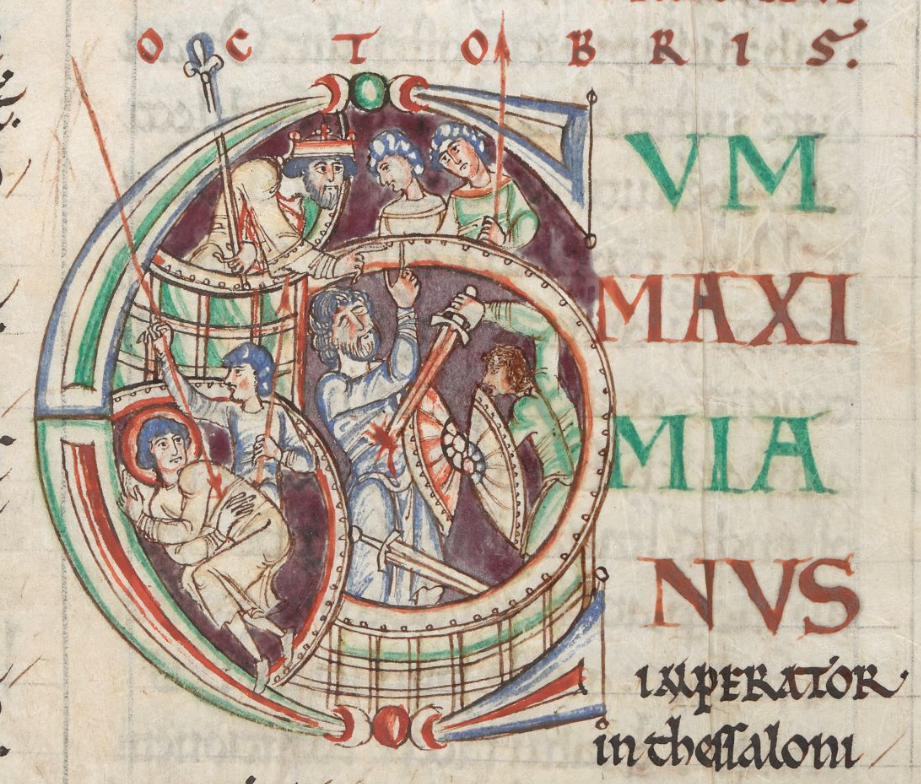 OCTOBRIS.
CVM
MAXI
MIA
NVS
IMPERATOR
in thessaloni